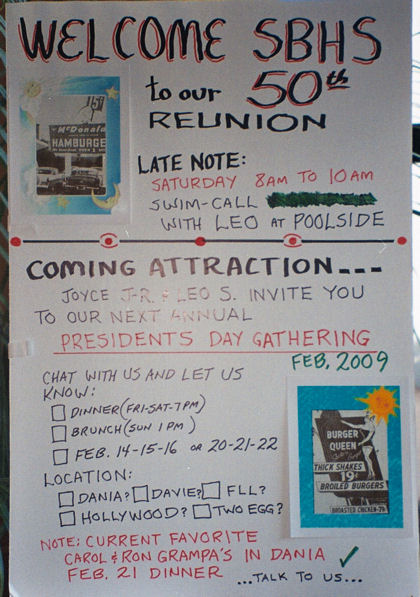 WELCOME SBHS
to our 50th
REUNION
15¢
McDonald
HAMBURGE
LATE NOTE:
SATURDAY 8AM TO 10AM
SWIM-CALL
WITH LEO AT POOLSIDE
COMING ATTRACTION---
JOYCE J-R. & LEO S. INVITE YOU
TO OUR NEXT ANNUAL
PRESIDENTS DAY GATHERING
FEB. 2009
CHAT WITH US AND LET US
KNOW:
DINNER (FRI-SAT-7PM)
BRUNCH (SUN 1PM)
FEB. 14-15-16 OR 20-21-22
LOCATION:
DANIA? DAVIE? FLL?
HOLLYWOOD? TWO EGG?
BURGER
QUEEN
THICK SHAKES
19¢
BROILED BURGERS
BROASTED CHICKEN-79¢
NOTE: CURRENT FAVORITE
CAROL & RON GRAMPA'S IN DANIA
FEB. 21 DINNER ...TALK TO US...